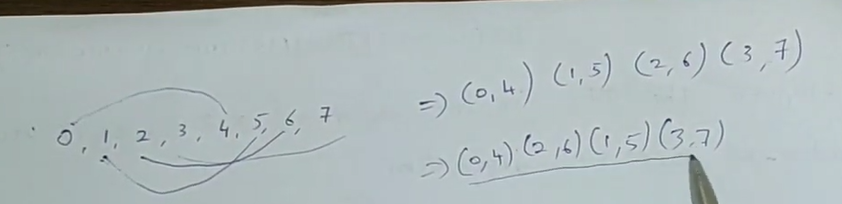 0, 1, 2, 3, 4, 5, 6, 7
=> (0,4) (1,5) (2,6) (3,7)
=> (0,4) (2,6) (1,5) (3,7)